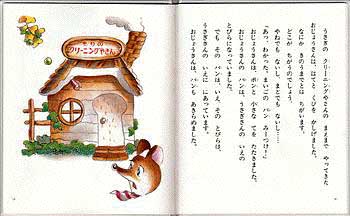 もりの
クリーニングやさん
うさぎの クリーニングやさんの まえまで やってきた
おじょうさんは、はてと くびを かしげました。
なにか きのうまでとは ちがいます。
どこが ちがうのでしょう。
やねでも ないし、まどでも ないし……。
「あっ、わかった。まいごの パン みーつけ！」
おじょうさんは、ポンと 小さな てを たたきました。
おじょうさんの パンは、うさぎさんの いえの
とびらに なっていました。
でも、その パンは、いえ、その とびらは、
うさぎさんの いえに にあっています。
おじょうさんは、パンを あきらめました。